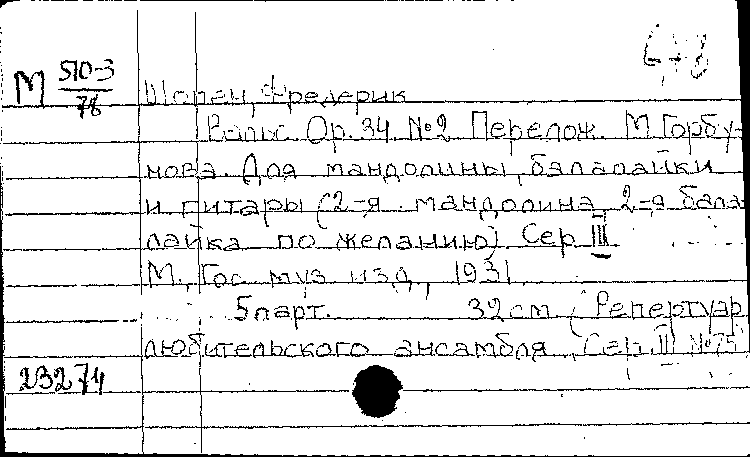 М 510-3
78
Шопен, Фредерик
Вальс Op. 34 №2 Перелож. М. Горбу-
нова. Для мандолины, балалайки
и гитары (2-я мандолина, 2-я бала-
лайка по желанию) Сер III
М., Гос. муз. изд., 1931
5 парт. 32 см (Репертуар
любительского ансамбля, Сер. III №75
23274